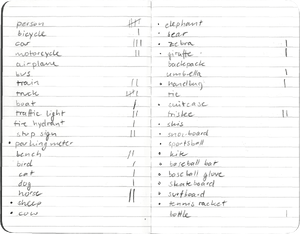 person
bicycle
car
motorcycle
airplane
bus
train
truck
boat
traffic light
fire hydrant
stop sign
• parking meter
bench
bird
cat
dog
horse
• sheep
• cow
• elephant
• bear
• zebra
• giraffe
backpack
umbrella
• handbag
tie
• suitcase
frisbee
• skis
• snowboard
• sportsball
• kite
• baseball bat
• baseball glove
• skateboard
• surfboard
• tennis racket
bottle